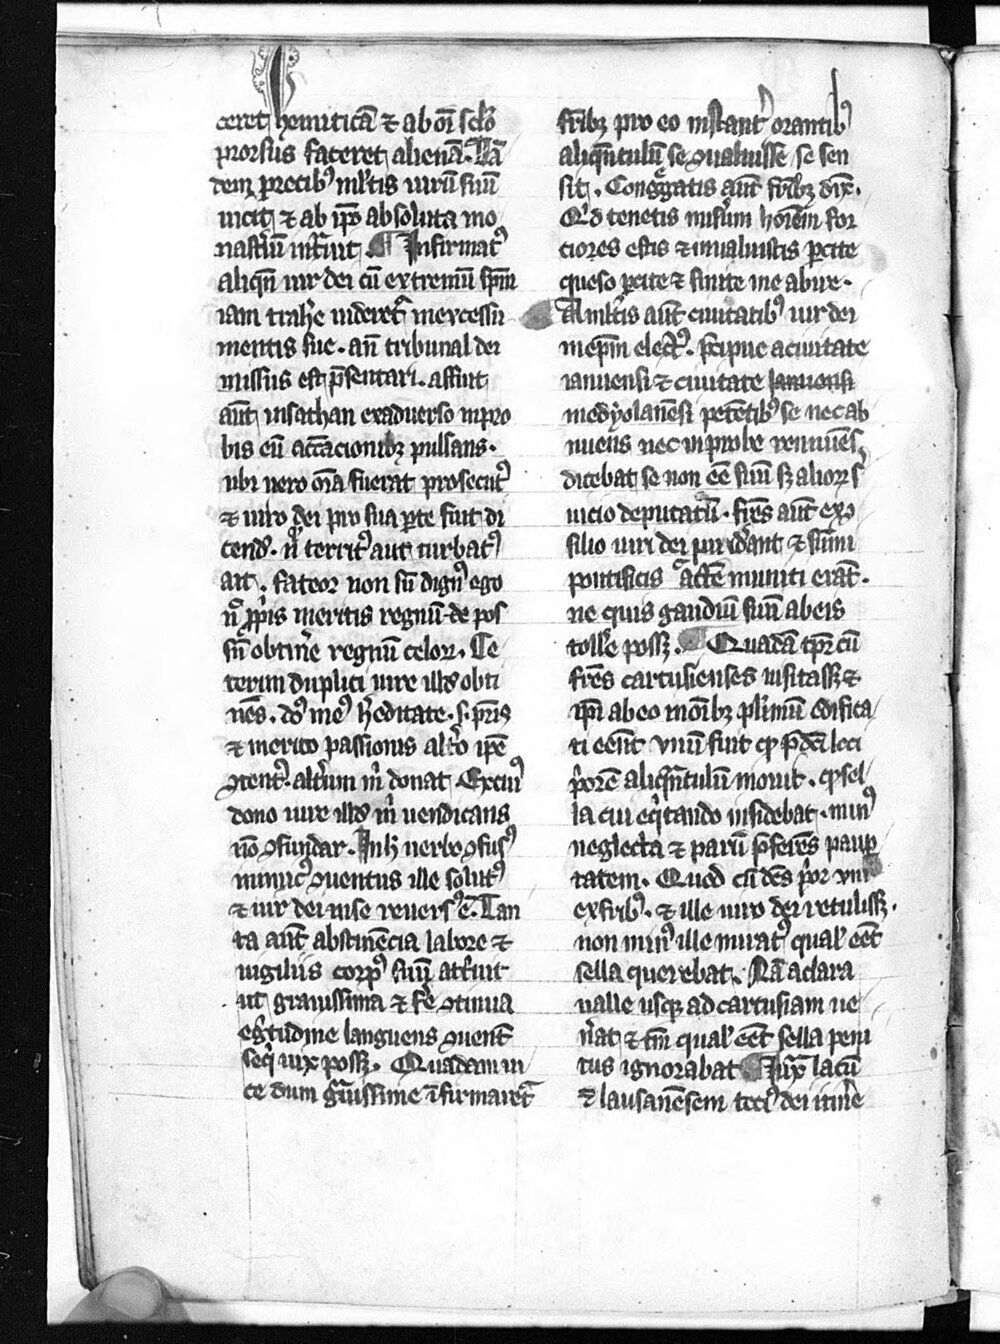 ceret heniiticā ⁊ ab oī sc̄lo
prorsus faceret alienā. Tā
dem precibꝰ ml̓tis uirū suū
uicit ⁊ ab ip̄o absoluta mo
nast̓iū int̓uit ¶ Infirmatꝰ
aliqn̄ uir dei cū extremū sp̄m
iam trah̓e uideret̓ in excessu
mentis sue. an̄ tribunal dei
missus est p̄sentari. affuit
aūt insathan exaduerso inpro
bis eū accācionibꝫ pulsans.
ubi uero oīa fuerat prosecutꝰ
⁊ uiro dei pro sua ꝑte fuit di
cendꝰ. n̄ territꝰ aut turbatꝰ
ait. fateor non sū dignꝰ ego
nͥ ꝓpͥis meritis regnū de pos
sū obtin̓e regnū celoꝝ. Ce
terum duplici iure illdꝰ obti
nēs. dn̄s meꝰ h̓editate. s. pr̄is
⁊ merito passionis alt̓o ip̄e
ꝯtentꝰ. alt̓um m̓ donat Ex cuiꝰ
dono iure illdꝰ m̓ uendicans
nō ꝯfundar. In h̓ uerbo ꝯfusꝰ
inimicꝰ ꝯuentus ille solutꝰ
⁊ uir dei in se reuersꝰ ē. Tan
ta aūt abstinēcia labore ⁊
uigiliis corpꝰ suū att̓uit
ut grauissima ⁊ fe̓ ꝯtinua
eg̓tudine languens ꝯuent̄
seq̓ uix possꝫ. Quadam ui
ce dum gͣuissime īfirmaret̓
fr̄ibꝫ pro eo instant̓ orantibꝰ
aliqn̄tulū se ꝯualuisse se sen
sit. Congͤgatis aūt fr̄ibꝫ dix̄.
Qͥd tenetis misͤum hoīem for
ciores estis ⁊ inualuistis ꝑcite
queso ꝑcite ⁊ sinite me abire.
A ml̓tis aūt ciuitatibꝰ uir dei
in ep̄m electꝰ. p̄cipue aciuitate
ianuensi ⁊ ciuitate ianuensi
medyolanēsi petētibꝰ se nec ab
nuens nec inprobe renuuēs
dicebat se non eē suū sꝫ alioꝝ s̓
uicio deputatū. fr̄es aūt ex ꝯ
silio uiri dei puidāt ⁊ sūmi
pontificis actͤe muniti erāt.
ne quis gaudiū suū ab eis
toll̓e possꝫ. ¶ Quadā tp̄r cū
fr̄es cartusienses uisitasꝫ ⁊
ip̄i ab eo moībꝫ pl̓imū edifica
ti eēnt vnū fuit qͥ p̄dcī loci
p̓orē aliqn̄tulū mouit. qͥ sel
la cui eqͥtando insidebat. minꝰ
neglecta ⁊ parū p̄ferēs pauꝑ
tatem. Quod cū dēs p̓or vni
ex fr̄ibꝰ. ⁊ ille uiro dei retulisꝫ.
non minꝰ ille miratꝰ qual̓ eēt
sella querebat. Nā aclara
ualle usqꝫ ad cartusiam ue
n̓at ⁊ tm̄ qual̓ eēt sella peni
tus ignorabat ¶ Iux̄ lacū
⁊ lausanēsem tociꝰ dei itin̓e